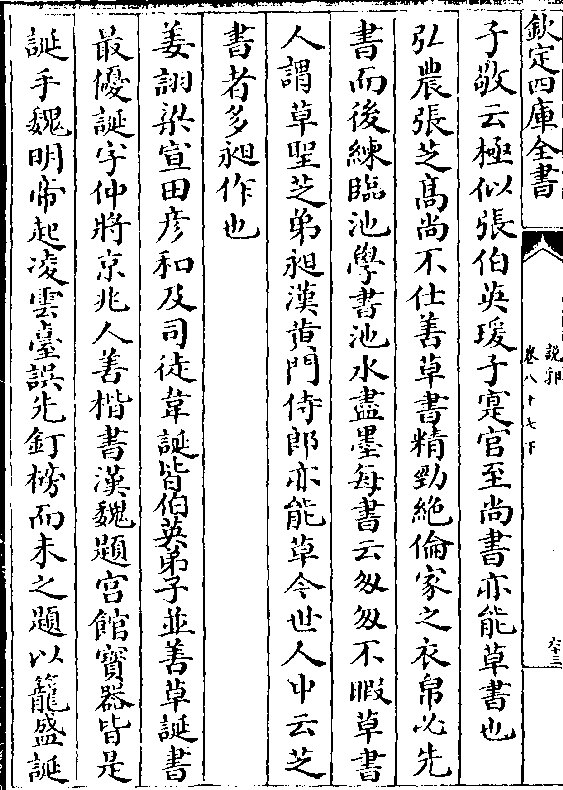 欽定四庫全書
說郛
卷八十七下
六十三
子敬云極似張伯英瑗子寔官至尚書亦能草書也
弘農張芝髙尚不仕善草書精勁絶倫家之衣帛必先
書而後練臨池學書池水盡墨每書云匆匆不暇草書
人謂草聖芝弟昶漢黄門侍郎亦能草今世人中云芝
書者多昶作也
姜詡梁宣田彦和及司徒韋誕皆伯英弟子並善草誕書
最優誕字仲將京兆人善楷書漢魏題宫館寳器皆是
誕手魏明帝起凌雲臺誤先釘榜而未之題以籠盛誕